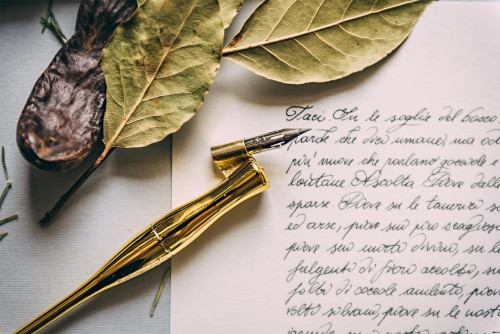 Taci. Su le soglie del bosco
parole che dici umane; ma odo
più nuove che parlano gocciole e
lontane. Ascolta. Piove dalle
sparse. Piove su le tamerici
ed arse, piove sui pini scagliosi
piove sui mirti divini, su le
fulgenti di fiori accolti, su
folti di coccole aulenti, piove
volti silvani, piove su le
ignude su i